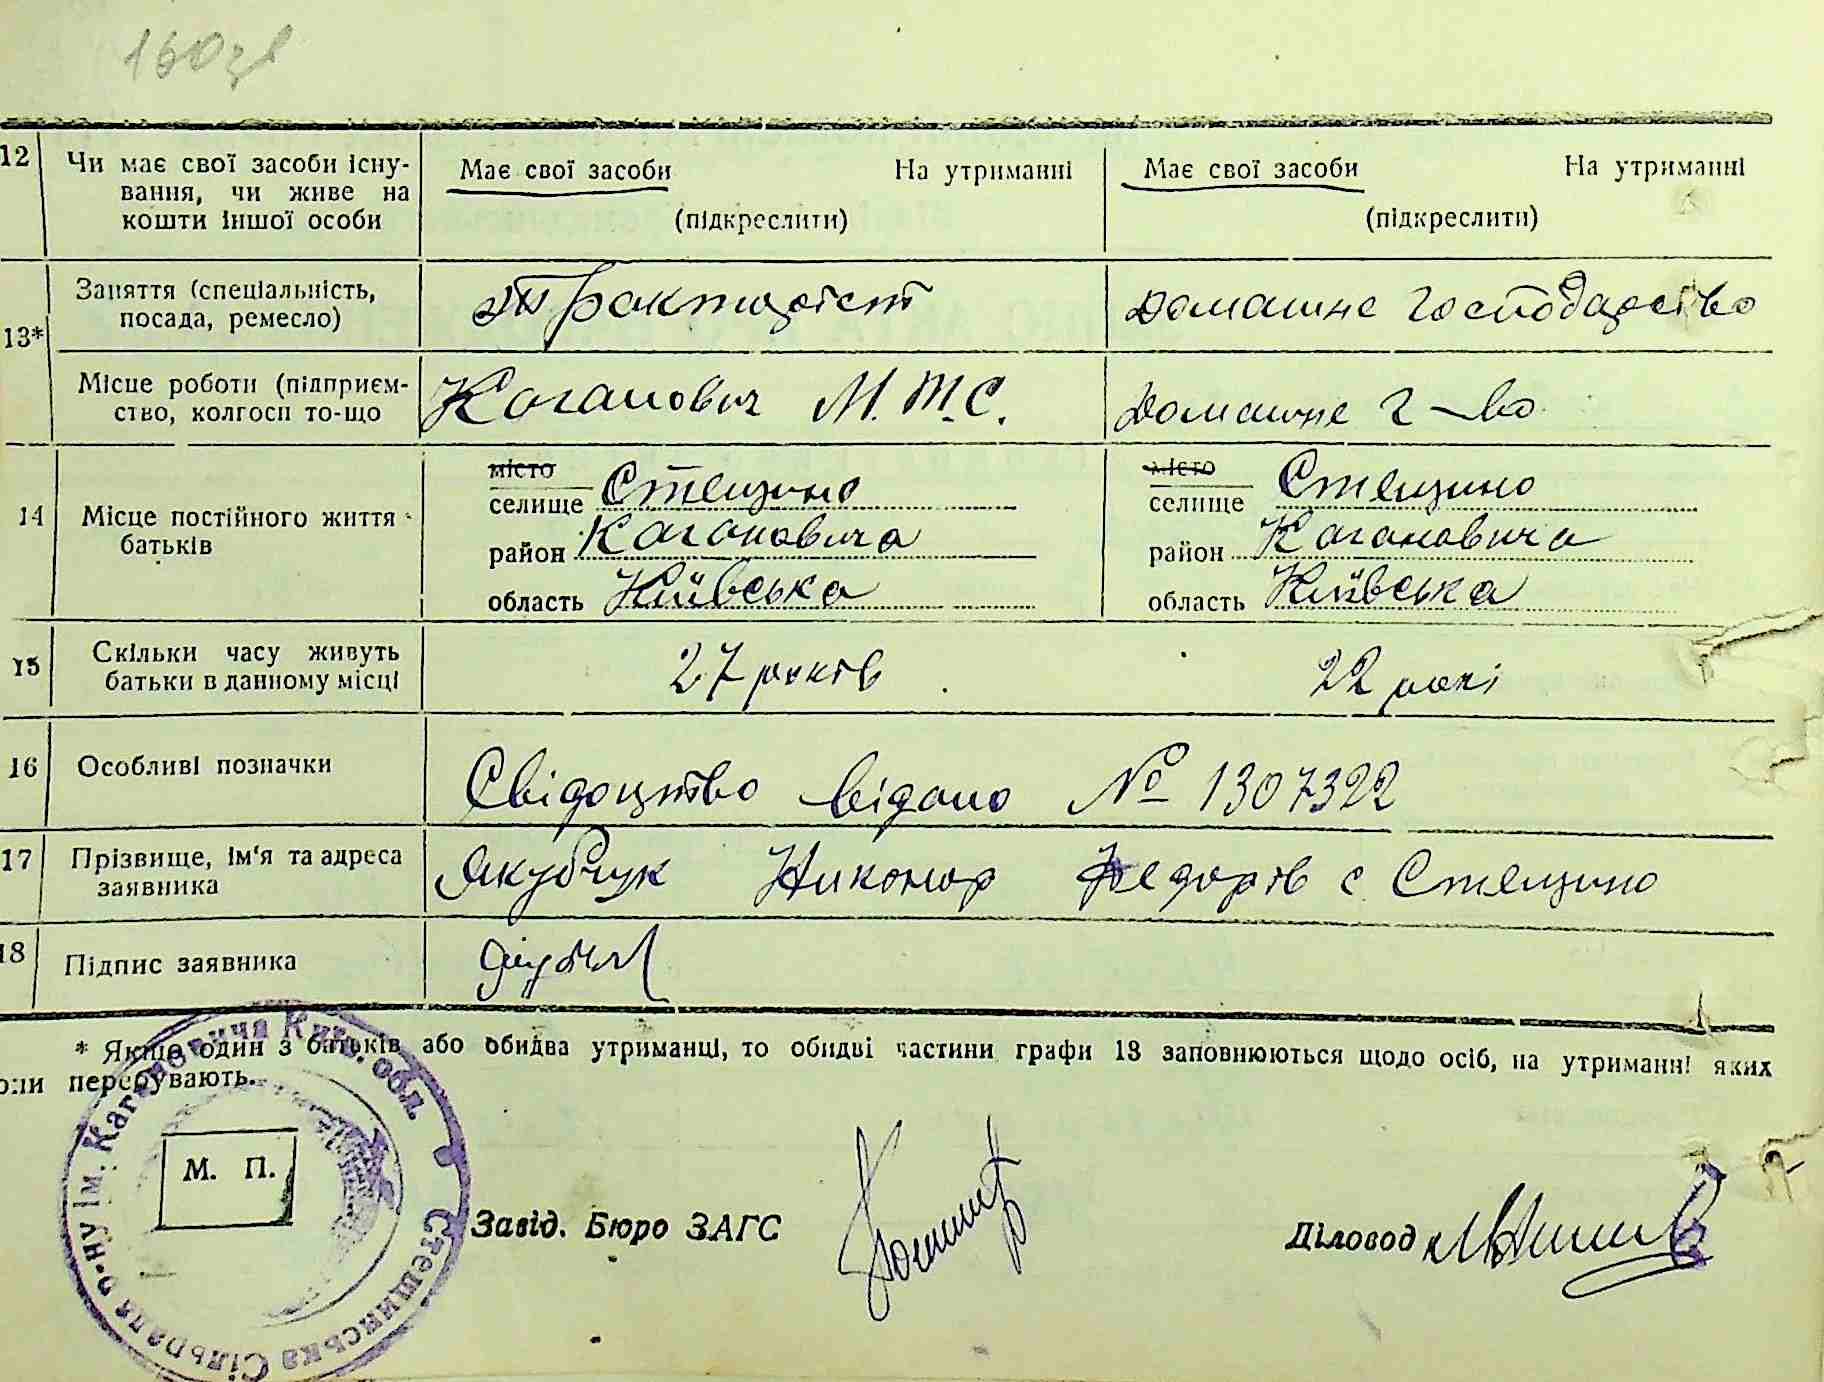 160 зв
12 Чи має свої засоби існу-
вання, чи живе на
кошти іншої особи
Має свої засоби На утриманні
(підкреслити)
Має свої засоби На утриманні
(підкреслити)
13*
Заняття (спеціальність,
посада, ремесло)
Тракторіст
Домашне господарство
Місце роботи (підприєм-
ство, колгосп то-що
Каганович М.Т.С.
Домашне г-во
14 Місце постійного життя
батьків
місто
селище Стещино
район Кагановича
область Київська
місто
селище Стещино
район Кагановича
область Київська
15 Скільки часу живуть
батьки в данному місці
27 років
22 рокі
16 Особливі позначки
Свідоцтво видано № 1307322
17 Прізвище, ім'я та адреса
заявника
Якубчук Никонор Федорів с Стещино
18 Підпис заявника
* Якщо один з батьків або обидва утриманці, то обидві частини графи 13 заповнюються щодо осіб, на утриманні яких
вони перебувають.
М. П.
Стещинська Сільрада р-ну ім. Кагановича Київ. обл.
Завід. Бюро ЗАГС
Діловод